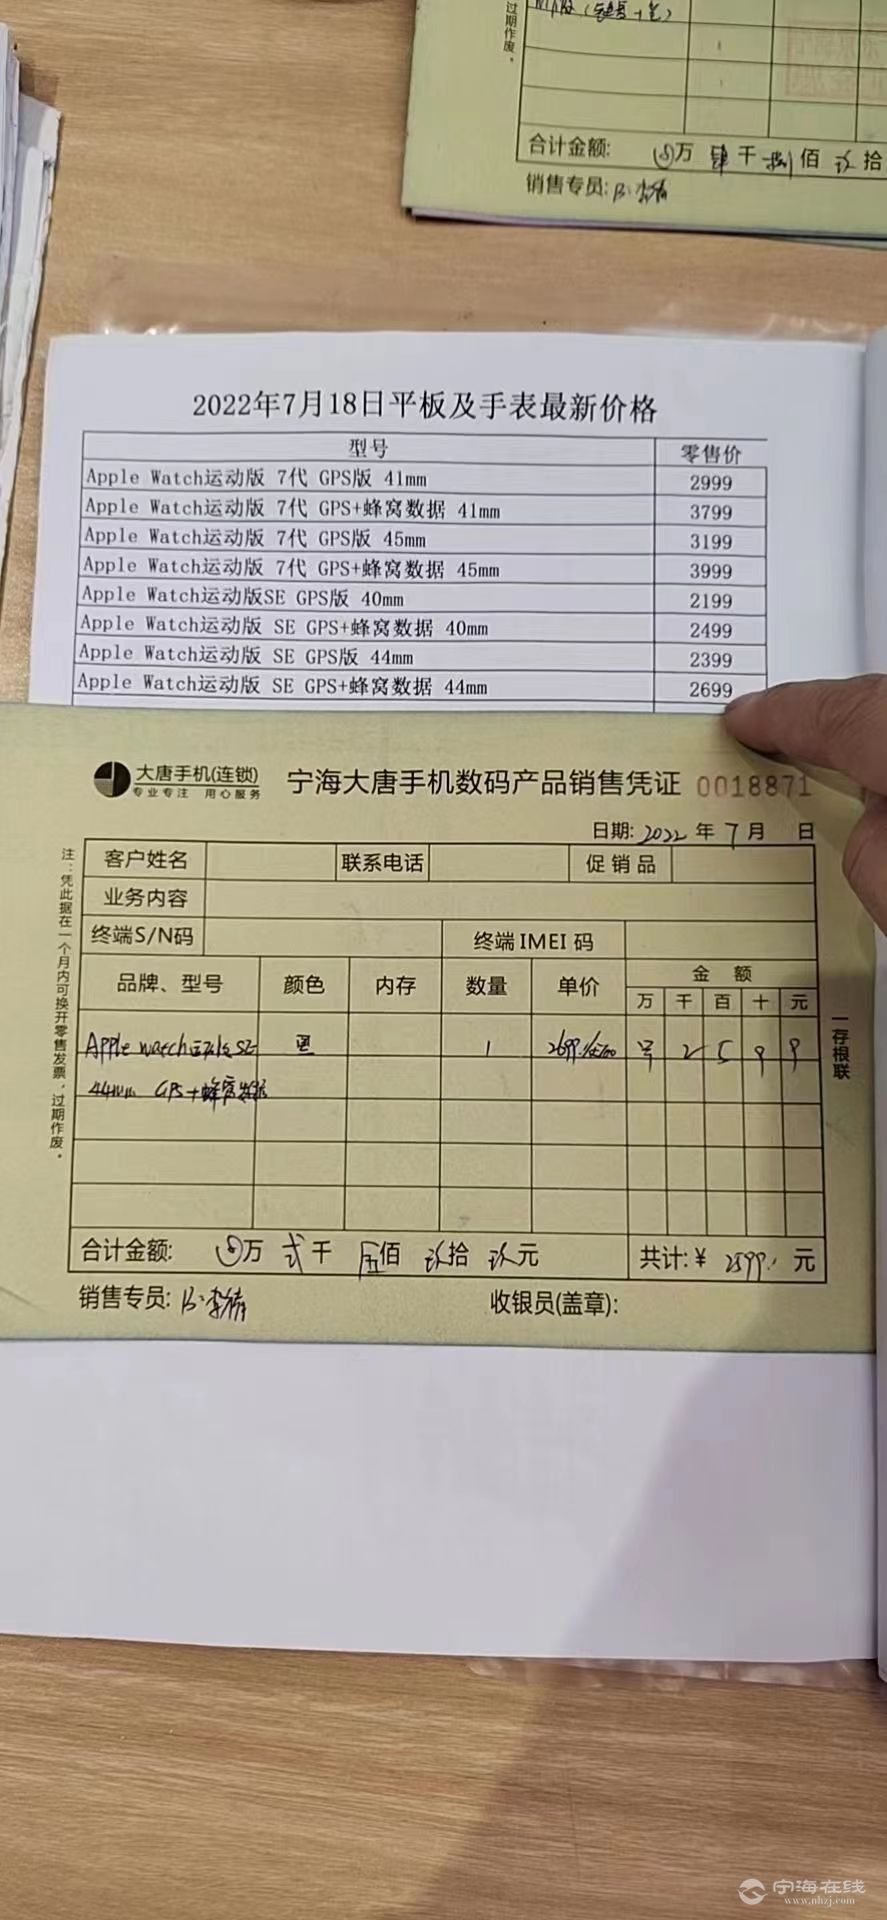 过期作废。
合计金额: ⊗万 肆 千 捌 佰 玖 拾
销售专员:
2022年7月18日平板及手表最新价格
型号 零售价
Apple Watch运动版 7代 GPS版 41mm 2999
Apple Watch运动版 7代 GPS+蜂窝数据 41mm 3799
Apple Watch运动版 7代 GPS版 45mm 3199
Apple Watch运动版 7代 GPS+蜂窝数据 45mm 3999
Apple Watch运动版SE GPS版 40mm 2199
Apple Watch运动版 SE GPS+蜂窝数据 40mm 2499
Apple Watch运动版 SE GPS版 44mm 2399
Apple Watch运动版 SE GPS+蜂窝数据 44mm 2699
大唐手机(连锁)
专业专注 用心服务
宁海大唐手机数码产品销售凭证 0018871
日期: 2022 年 7 月 日
客户姓名 联系电话 促销品
业务内容
终端S/N码 终端IMEI码
品牌、型号 颜色 内存 数量 单价 金额
万 千 百 十 元
Apple watch运动版SE 黑 1 2 5 9 9
44mm GPS+蜂窝数据
合计金额: ⊗万 弍 千 伍 佰 玖 拾 玖 元 共计:¥ 2599 元
销售专员: 收银员(盖章):
注:凭此据在一个月内可换开零售发票,过期作废。
一存根联
宁海在线
www.nhzj.com